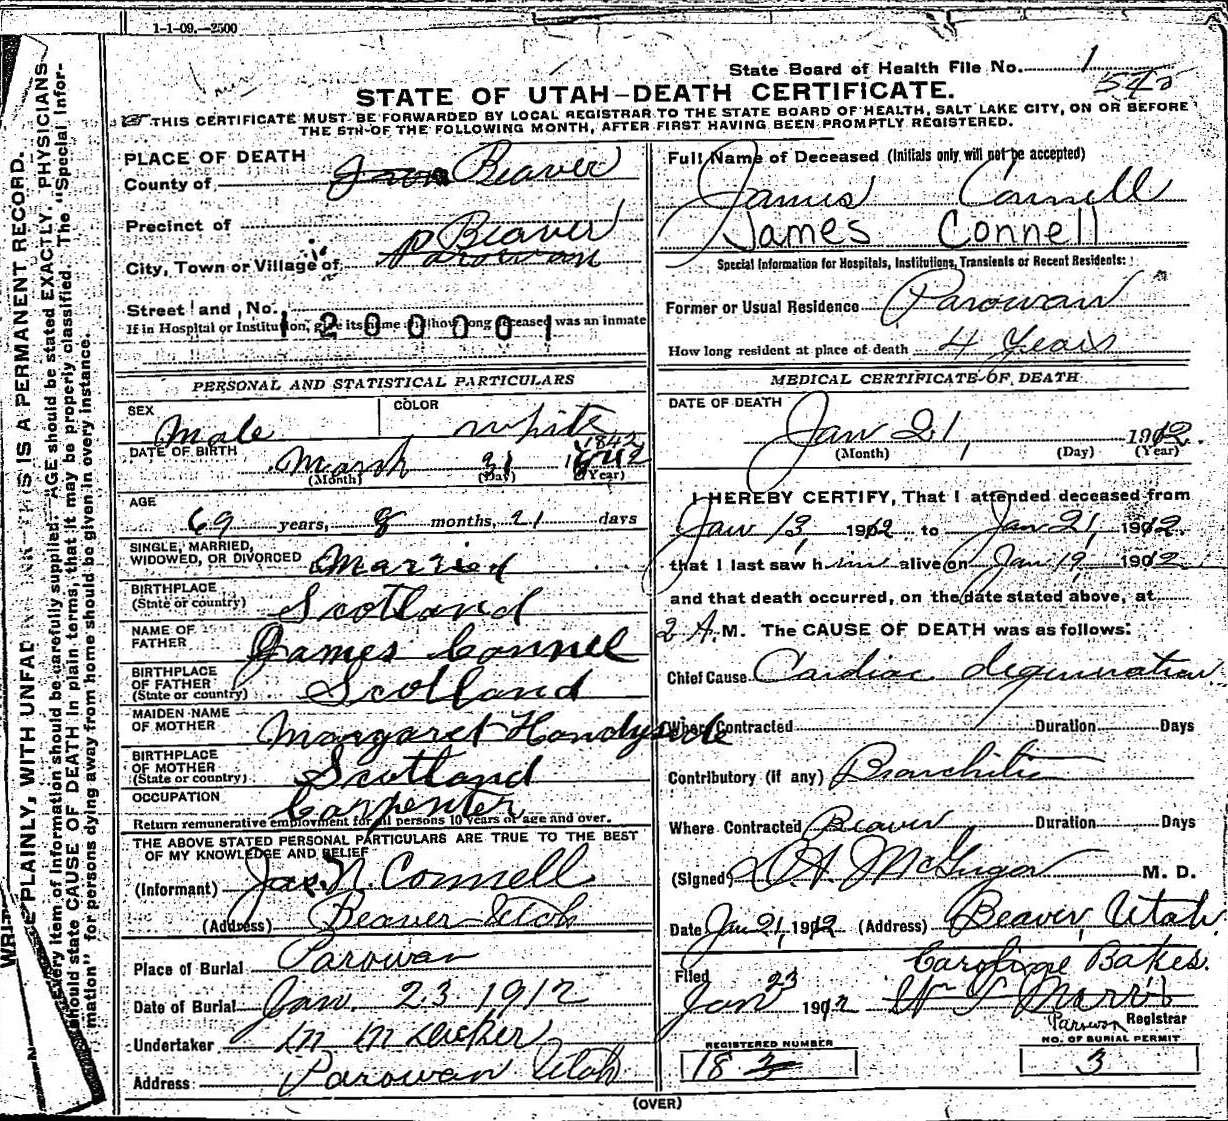 1-1-09.—2500
State Board of Health File No. 1
STATE OF UTAH—DEATH CERTIFICATE.
THIS CERTIFICATE MUST BE FORWARDED BY LOCAL REGISTRAR TO THE STATE BOARD OF HEALTH, SALT LAKE CITY, ON OR BEFORE
THE 5TH OF THE FOLLOWING MONTH, AFTER FIRST HAVING BEEN PROMPTLY REGISTERED.
WRITE PLAINLY, WITH UNFADING INK—THIS IS A PERMANENT RECORD.
Every item of information should be carefully supplied. AGE should be stated EXACTLY. PHYSICIANS
should state CAUSE OF DEATH in plain terms, that it may be properly classified. The "Special Infor-
mation" for persons dying away from home should be given in every instance.
PLACE OF DEATH
County of Iron Beaver
Precinct of Beaver
City, Town or Village of Parowan
Street and No.
If in Hospital or Institution, give its name and how long deceased was an inmate
1200001
PERSONAL AND STATISTICAL PARTICULARS
SEX Male COLOR white
DATE OF BIRTH March 31 1842 1842
(Month) (Day) (Year)
AGE
69 years, 8 months, 21 days
SINGLE, MARRIED,
WIDOWED, OR DIVORCED Married
BIRTHPLACE
(State or country) Scotland
NAME OF
FATHER James Connel
BIRTHPLACE
OF FATHER Scotland
(State or country)
MAIDEN NAME
OF MOTHER Margaret Handyside
BIRTHPLACE
OF MOTHER Scotland
(State or country)
OCCUPATION Carpenter
Return remunerative employment for all persons 10 years of age and over.
THE ABOVE STATED PERSONAL PARTICULARS ARE TRUE TO THE BEST
OF MY KNOWLEDGE AND BELIEF
(Informant) Jas. N. Connell
(Address) Beaver Utah
Place of Burial Parowan
Date of Burial Jan. 23 1912
Undertaker M M Decker
Address Parowan Utah
Full Name of Deceased (Initials only will not be accepted)
James Connell
James Connell
Special Information for Hospitals, Institutions, Transients or Recent Residents:
Former or Usual Residence Parowan
How long resident at place of death 4 Years
MEDICAL CERTIFICATE OF DEATH
DATE OF DEATH
Jan 21, 1912
(Month) (Day) (Year)
I HEREBY CERTIFY, That I attended deceased from
Jan 13, 1912 to Jan 21, 1912
that I last saw him alive on Jan 19, 1912
and that death occurred, on the date stated above, at
2 A.M. The CAUSE OF DEATH was as follows:
Chief Cause Cardiac degeneration
Where Contracted Duration Days
Contributory (if any) Bronchitis
Where Contracted Beaver Duration Days
(Signed) McGregor M. D.
Date Jan 21, 1912 (Address) Beaver, Utah.
Filed Caroline Bakes.
Jan 23 1912
Parowan Registrar
REGISTERED NUMBER NO. OF BURIAL PERMIT
18 3 3
(OVER)